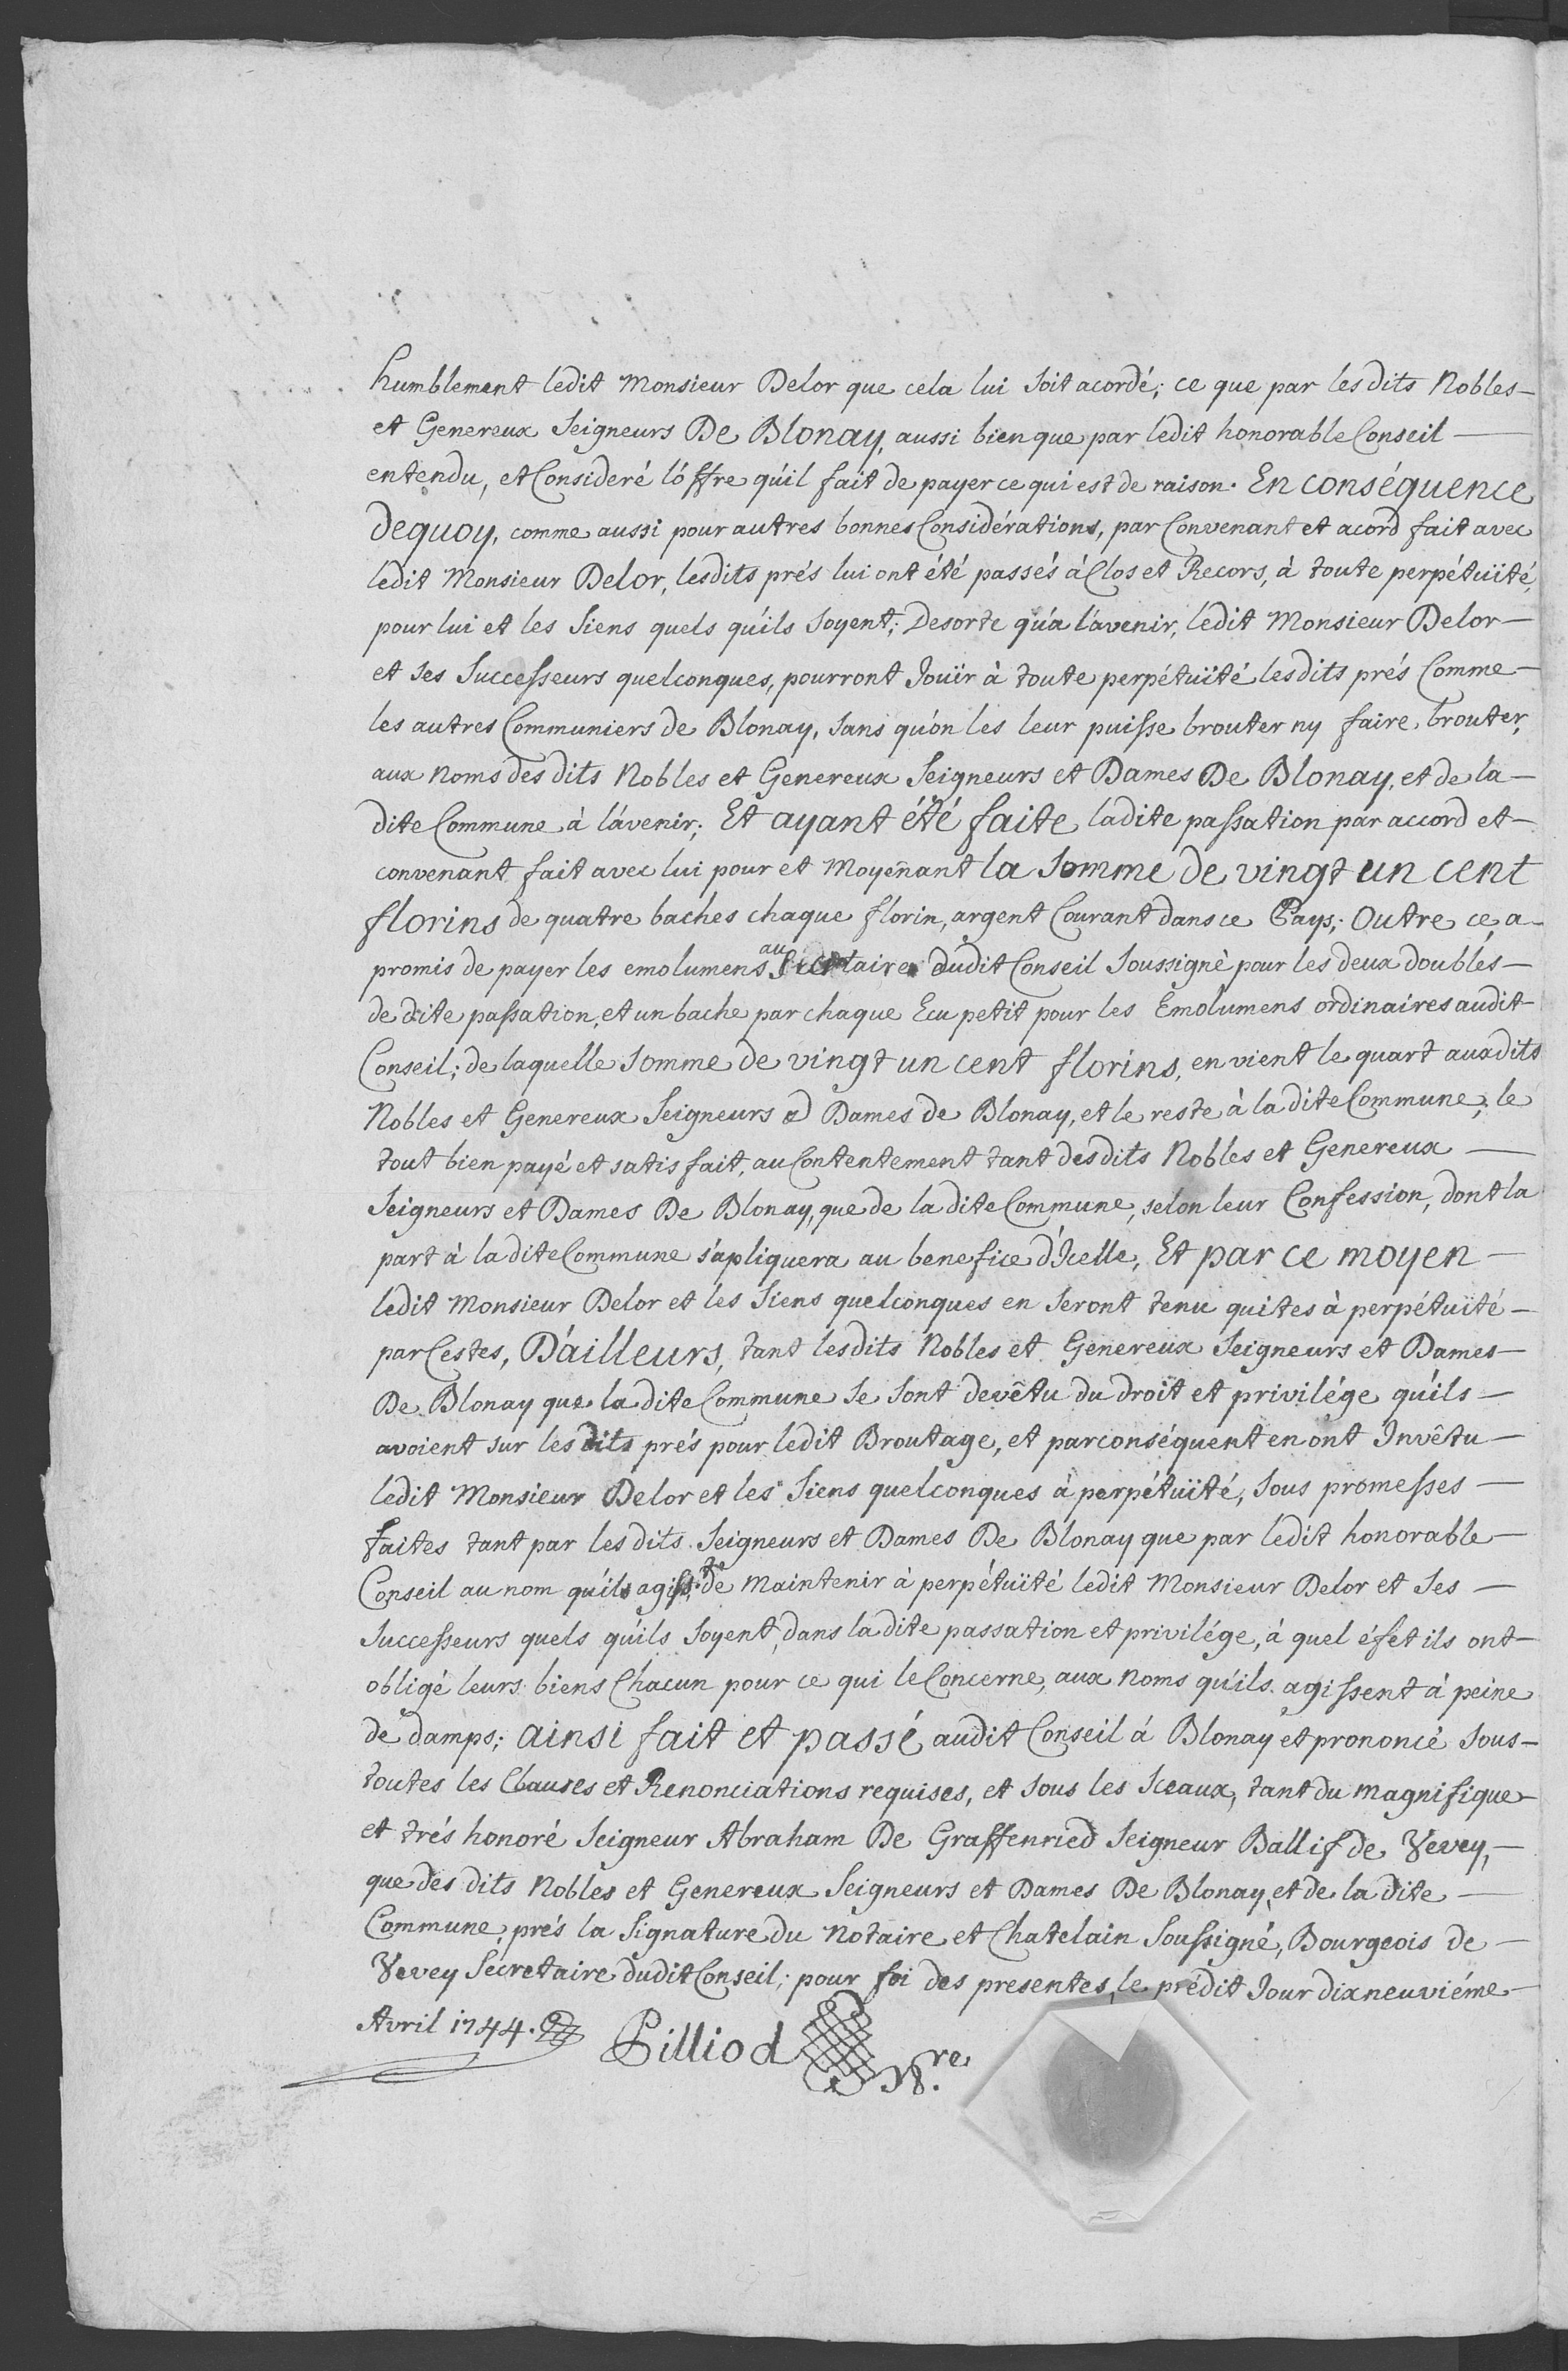 humblement ledit Monsieur Delor que cela lui soit acordé; ce que par les dits Nobles
et Genereux Seigneurs De Blonay, aussi bien que par ledit honorable Conseil
entendu, et Consideré l'offre qu'il fait de payer ce qui est de raison. En conséquence
dequoy, comme aussi pour autres bonnes Considérations, par Convenant et acord fait avec
ledit Monsieur Delor, lesdits prés lui ont été passés à Clos et Recors, à toute perpétuïté,
pour lui et les Siens quels qu'ils soyent; Desorte qu'a l'avenir, ledit Monsieur Delor
et ses Successeurs quelconques, pourront Jouïr à toute perpétuïté lesdits prés Comme
les autres Communiers de Blonay, sans qu'on les leur puisse brouter ny faire brouter,
aux noms des dits Nobles et Genereux Seigneurs et Dames De Blonay, et de la
dite Commune à l'avenir; Et ayant été faite ladite passation par accord et
convenant fait avec lui pour et Moyeñant la somme de vingt un cent
florins de quatre baches chaque florin, argent Courant dans ce Pays; Outre ce, a
promis de payer les emolumens au Secretaire dudit Conseil Soussigné pour les deux doubles
de dite passation, et un bache par chaque Ecu petit pour les Emolumens ordinaires audit
Conseil; de laquelle somme de vingt un cent florins, en vient le quart auxdits
Nobles et Genereux Seigneurs et Dames de Blonay, et le reste à la dite Commune; le
tout bien payé et satisfait, au Contentement tant desdits Nobles et Genereux
Seigneurs et Dames De Blonay, que de la dite Commune, selon leur Confession, dont la
part à la dite Commune s'apliquera au benefice d'Icelle, Et par ce moyen
ledit Monsieur Delor et les Siens quelconques en seront tenu quites à perpétuïté
par Cestes, D'ailleurs, tant lesdits Nobles et Genereux Seigneurs et Dames
De Blonay que la dite Commune se sont devêtu du droit et privilége qu'ils
avoient sur les dits prés pour ledit Broutage, et par conséquent en ont Invêtu
ledit Monsieur Delor et les Siens quelconques à perpétuïté, sous promesses
faites tant par les dits Seigneurs et Dames De Blonay que par ledit honorable
Conseil au nom qu'ils agiss.t de Maintenir à perpétuïté ledit Monsieur Delor et ses
successeurs quels qu'ils soyent, dans la dite passation et privilége, à quel éfet ils ont
obligé leurs biens Chacun pour ce qui le Concerne, aux noms qu'ils agissent à peine
de damps; ainsi fait et passé audit Conseil à Blonay et prononcé sous
toutes les Clauses et Renonciations requises, et sous les Sceaux, tant du Magnifique
et trés honoré Seigneur Abraham De Graffenried Seigneur Ballif de Vevey,
que des dits Nobles et Genereux Seigneurs et Dames De Blonay, et de la dite
Commune, prés la Signature du Notaire et Chatelain Soussigné, Bourgeois de
Vevey Secretaire dudit Conseil; pour foi des presentes, le prédit Jour dixneuviéme
Avril 1744. Pilliod N.re